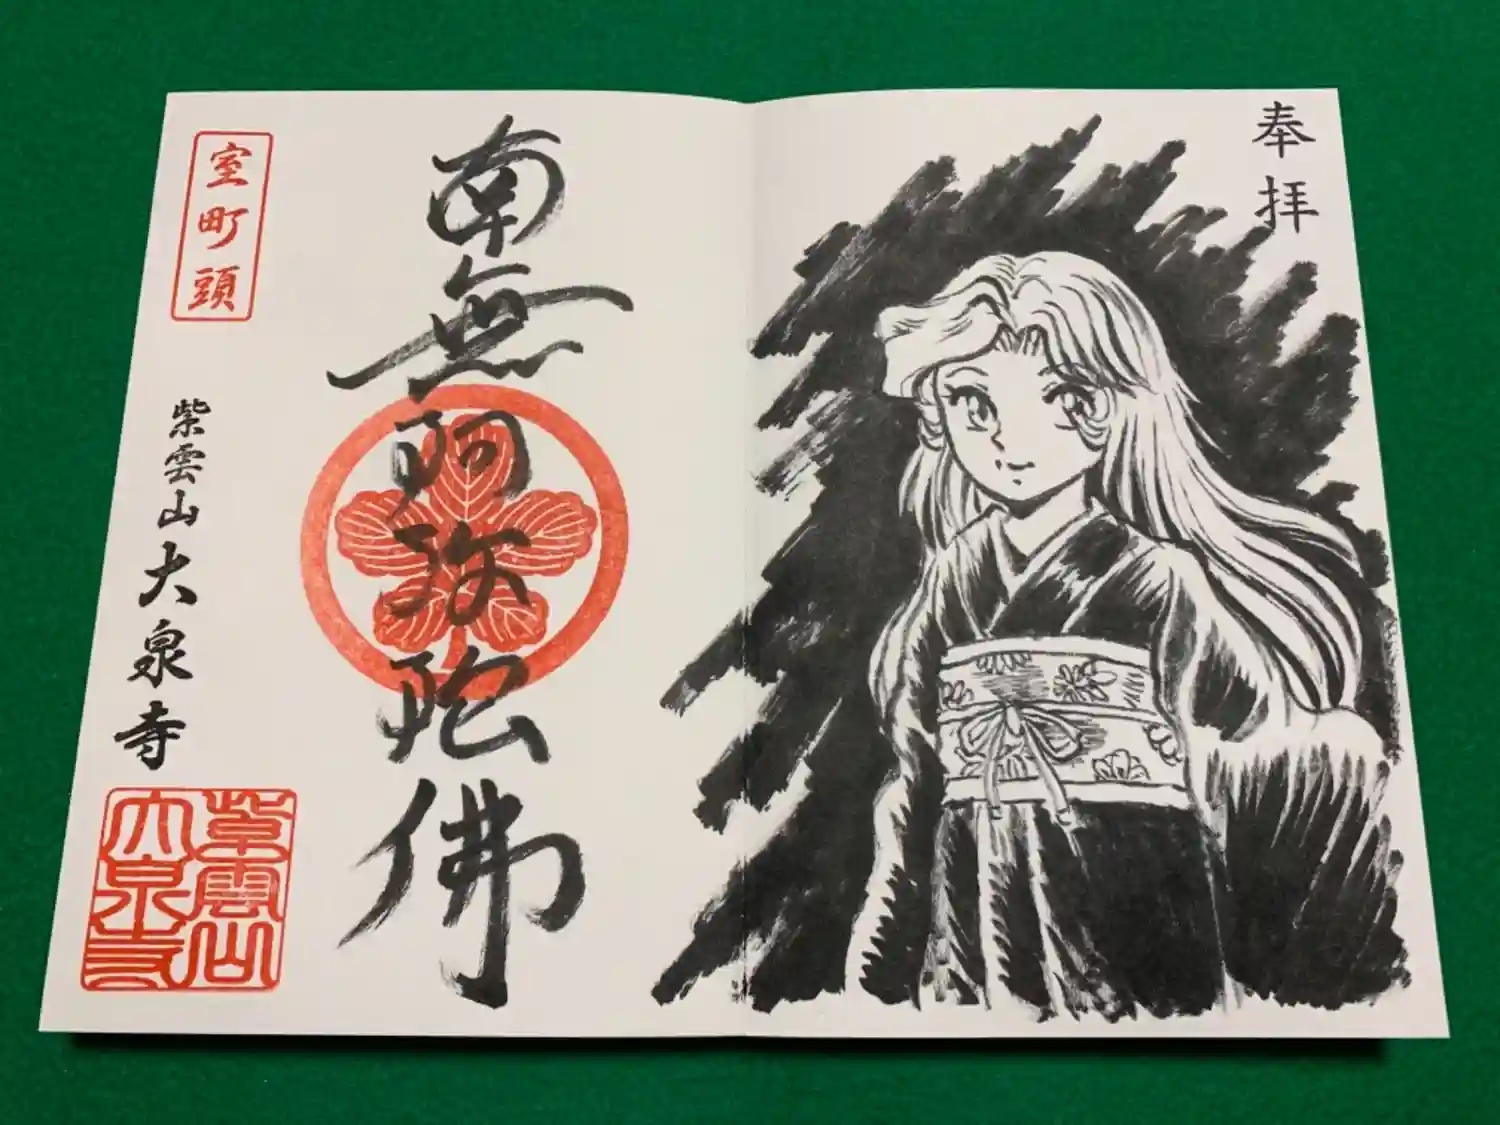 奉拝
南無阿弥陀佛
室町頭
紫雲山大泉寺
紫雲山
大泉寺